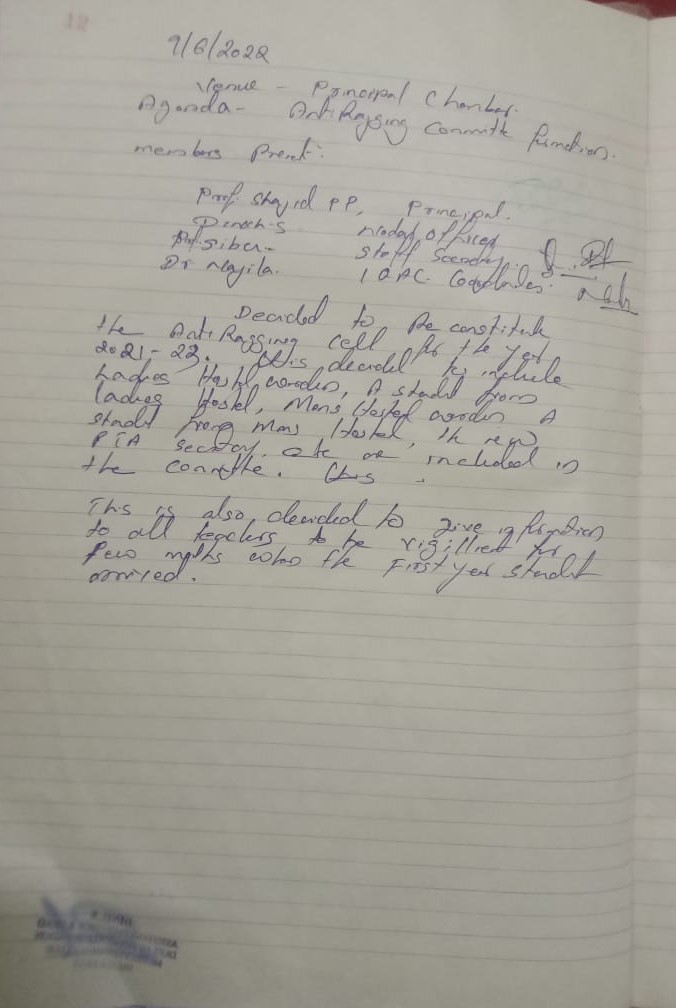 9/6/2022
Venue - Principal Chamber.
Agenda - Anti Ragging Committe formation.
members Present:
Prof. Shajid PP, Principal.
Dinesh S nodal officer
Siber - Staff Secretary
Dr Najila. IQAC. Coordinator.
Decided to Re constitute
the Anti Ragging cell for the year
2021-22. This decided to include
Ladies Hostel warden, A student from
ladies Hostel, Mens Hostel warden A
student from Mens Hostel, the new
PTA secretary. etc are included in
the committe. This .
This is also decided to give information
to all teachers to be vigillient for
few months when the First year student
arrived.